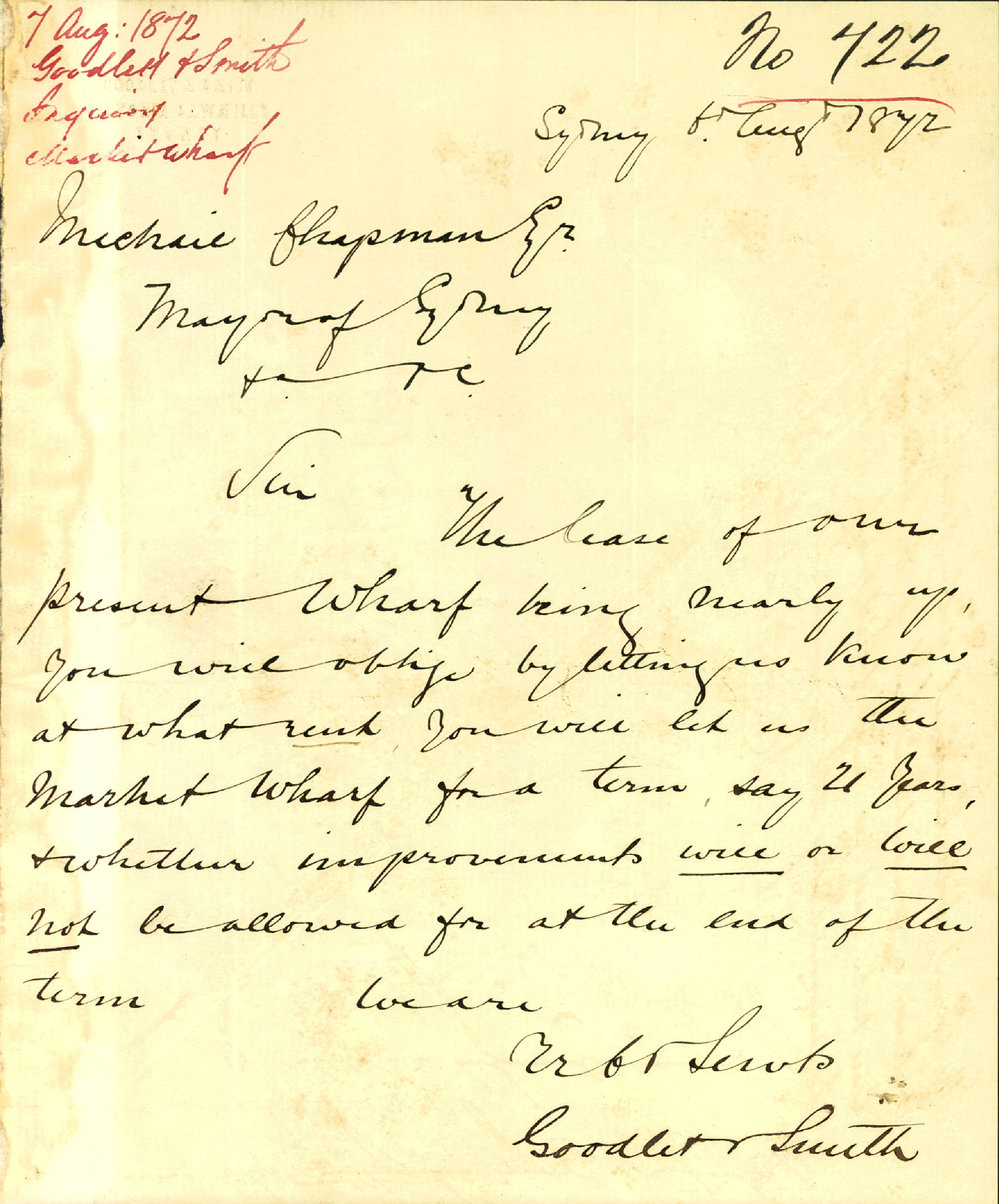 7 Aug: 1872
Goodlett & Smith
Inquiring
Market Wharf
No 722
Sydney 6th Augt 1872
Michael Chapman Esqr.
Mayor of Sydney
&c &c
Sir
The lease of our
present Wharf being nearly up,
you will oblige by letting us know
at what rent you will let us the
Market Wharf for a term, say 21 Years,
& whether improvements will or will
not be allowed for at the end of the
term We are
Yr Obt Servts
Goodlet & Smith